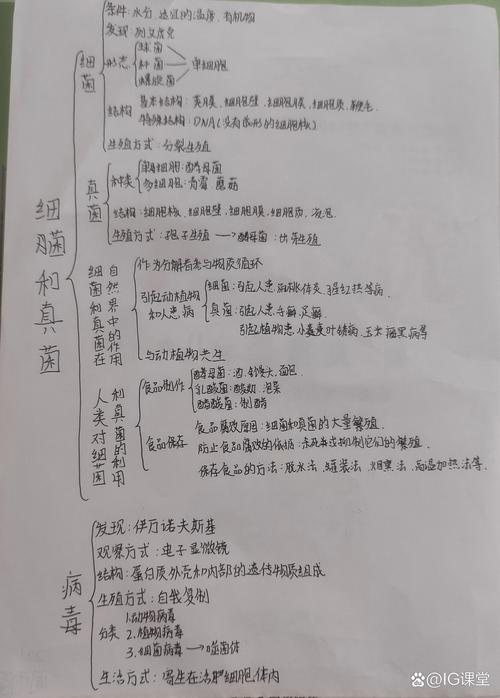 细菌和真菌
细菌
条件:水分、适宜的温度、有机物
发现:列文虎克
形态 球菌
杆菌
螺旋菌
单细胞
结构 基本结构:荚膜、细胞壁、细胞膜、细胞质、鞭毛
特殊结构:DNA(没有成形的细胞核)
生殖方式:分裂生殖
真菌
种类 单细胞:酵母菌
多细胞:青霉 蘑菇
结构:细胞核、细胞壁、细胞膜、细胞质、液泡
生殖方式:孢子生殖→酵母菌:出芽生殖
细菌和真菌在自然界中的作用
作为分解者参与物质循环
引起动植物和人患病
细菌:引起人患扁桃体炎、猩红热等病
真菌:引起人患手癣、足癣
引起植物患小麦叶锈病、玉米瘤黑病等
与动植物共生
人类对细菌和真菌的利用
食品制作 酵母菌:酒、馒头、面包
乳酸菌:酸奶、泡菜
醋酸菌:制醋
食品保存
食品腐败原因:细菌和真菌的大量繁殖
防止食品腐败的依据:杀死或抑制它们的繁殖
保存食品的方法:脱水法、罐装法、烟熏法、高温加热法等.
病毒
发现:伊万诺夫斯基
观察方式:电子显微镜
结构:蛋白质外壳和内部的遗传物质组成
生殖方式:自我复制
分类 1.动物病毒
2.植物病毒
3.细菌病毒→噬菌体
生活方式:寄生在活胞细胞体内
@IG课堂